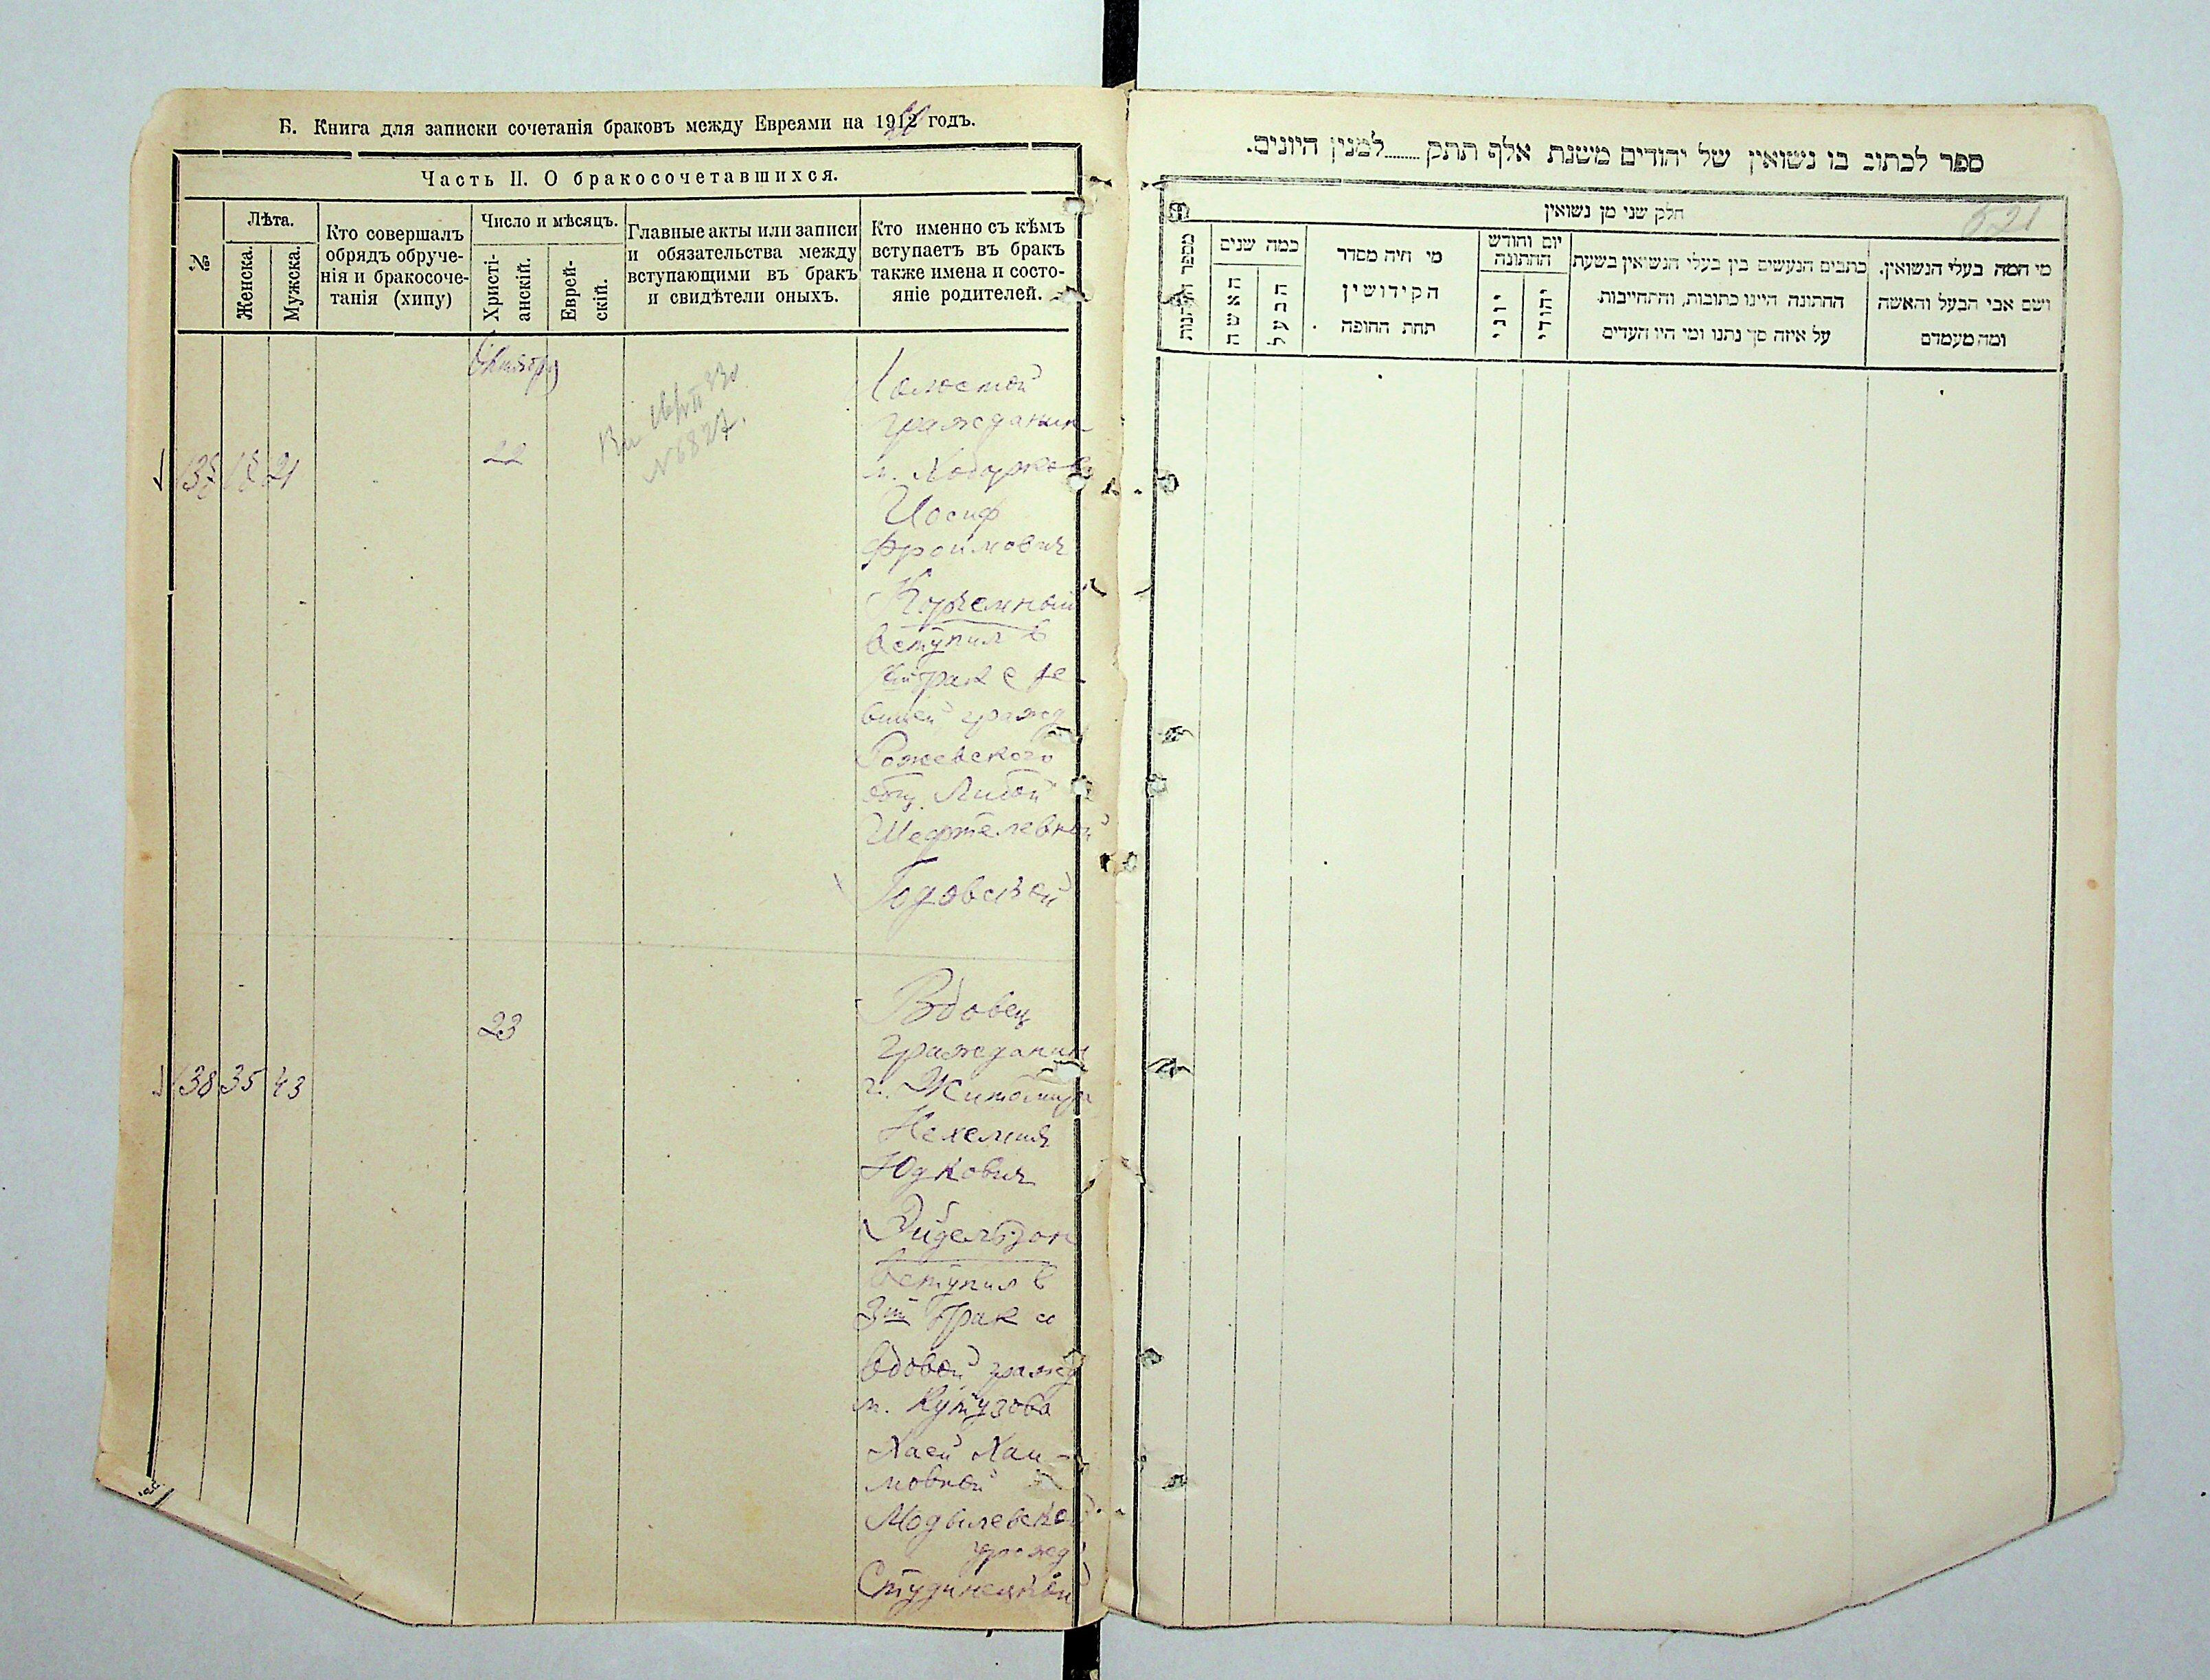 Б. Книга для записки сочетанія браковъ между Евреями на 1912 годъ.
Часть II. О бракосочетавшихся.
№
Лѣта.
Женска.
Мужска.
Кто совершалъ
обрядъ обруче-
нія и бракосоче-
танія (хипу)
Число и мѣсяцъ.
Христі-
анскій.
Еврей-
скій.
Главные акты или записи
и обязательства между
вступающими въ бракъ
и свидѣтели оныхъ.
Кто именно съ кѣмъ
вступаетъ въ бракъ
также имена и состо-
яніе родителей.
Октябрь
22
18 21
№ 6827.
Холостой
гражданин
м. Ходорков
Иосиф
Фроимович
Корчемный
вступил в
брак с де-
вицей гражд
Рожевского
общ.
Шефтелевной
Годовской
23
138 35 43
Вдовец
гражданин
г. Житомира
Нехемия
Юдкович
Эйдельзон
вступил в
3й брак со
вдовой гражд
м. Кутузова
Хаей Хаи-
мовной
Могилевско
урожд
ספר לכתוב בו נשואין של יהודים משנת אלף תתק........למנין היונים.
521
חלק שני מן נשואין
מספר החתונות
כמה שנים
האשה
הבעל
מי היה מסדר
הקידושין
תחת החופה
יום וחודש
החתונה
יוני
יהודי
כתבים הנעשים בין בעלי הנשואין בשעת
החתונה היינו כתובות, והתחייבות
על איזה סך נתנו ומי היו העדים
מי המה בעלי הנשואין.
ושם אבי הבעל והאשה
ומה מעמדם